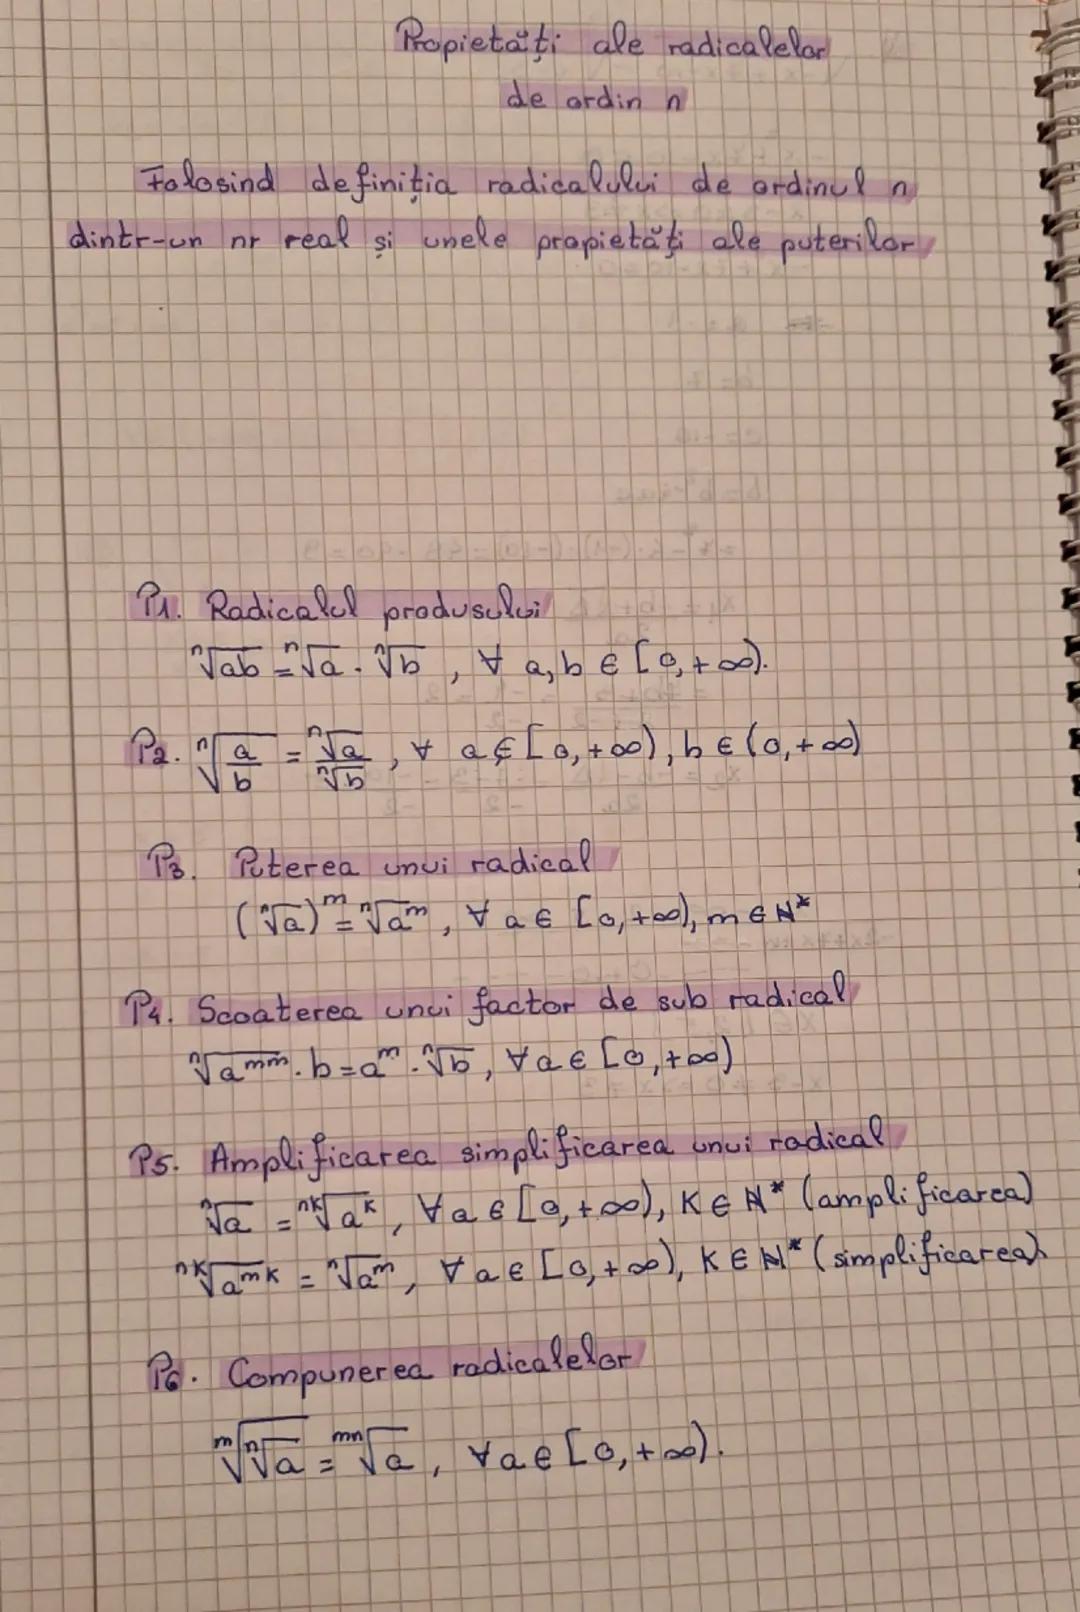 Propietăți ale radicalelor
de ordin n
Folosind definiția radicalului de ordinul n
dintr-un nr real și unele propietăți ale puterilor
P1. Radicalul produsului
ⁿ√ab = ⁿ√a · ⁿ√b , ∀ a, b ∈ [0, +∞).
P2. ⁿ√(a/b) = ⁿ√a / ⁿ√b , ∀ a ∈ [0, +∞), b ∈ (0, +∞)
P3. Puterea unui radical
(ⁿ√a)ᵐ = ⁿ√aᵐ , ∀ a ∈ [0, +∞), m ∈ ℕ*
P4. Scoaterea unui factor de sub radical
ⁿ√aᵐⁿ · b = aᵐ · ⁿ√b , ∀ a ∈ [0, +∞)
P5. Amplificarea simplificarea unui radical
ⁿ√a = ⁿᵏ√aᵏ , ∀ a ∈ [0, +∞), K ∈ ℕ* (amplificarea)
ⁿᵏ√aᵐᵏ = ⁿ√aᵐ , ∀ a ∈ [0, +∞), K ∈ ℕ* (simplificarea)
P6. Compunerea radicalelor
ᵐ√ⁿ√a = ᵐⁿ√a , ∀ a ∈ [0, +∞).